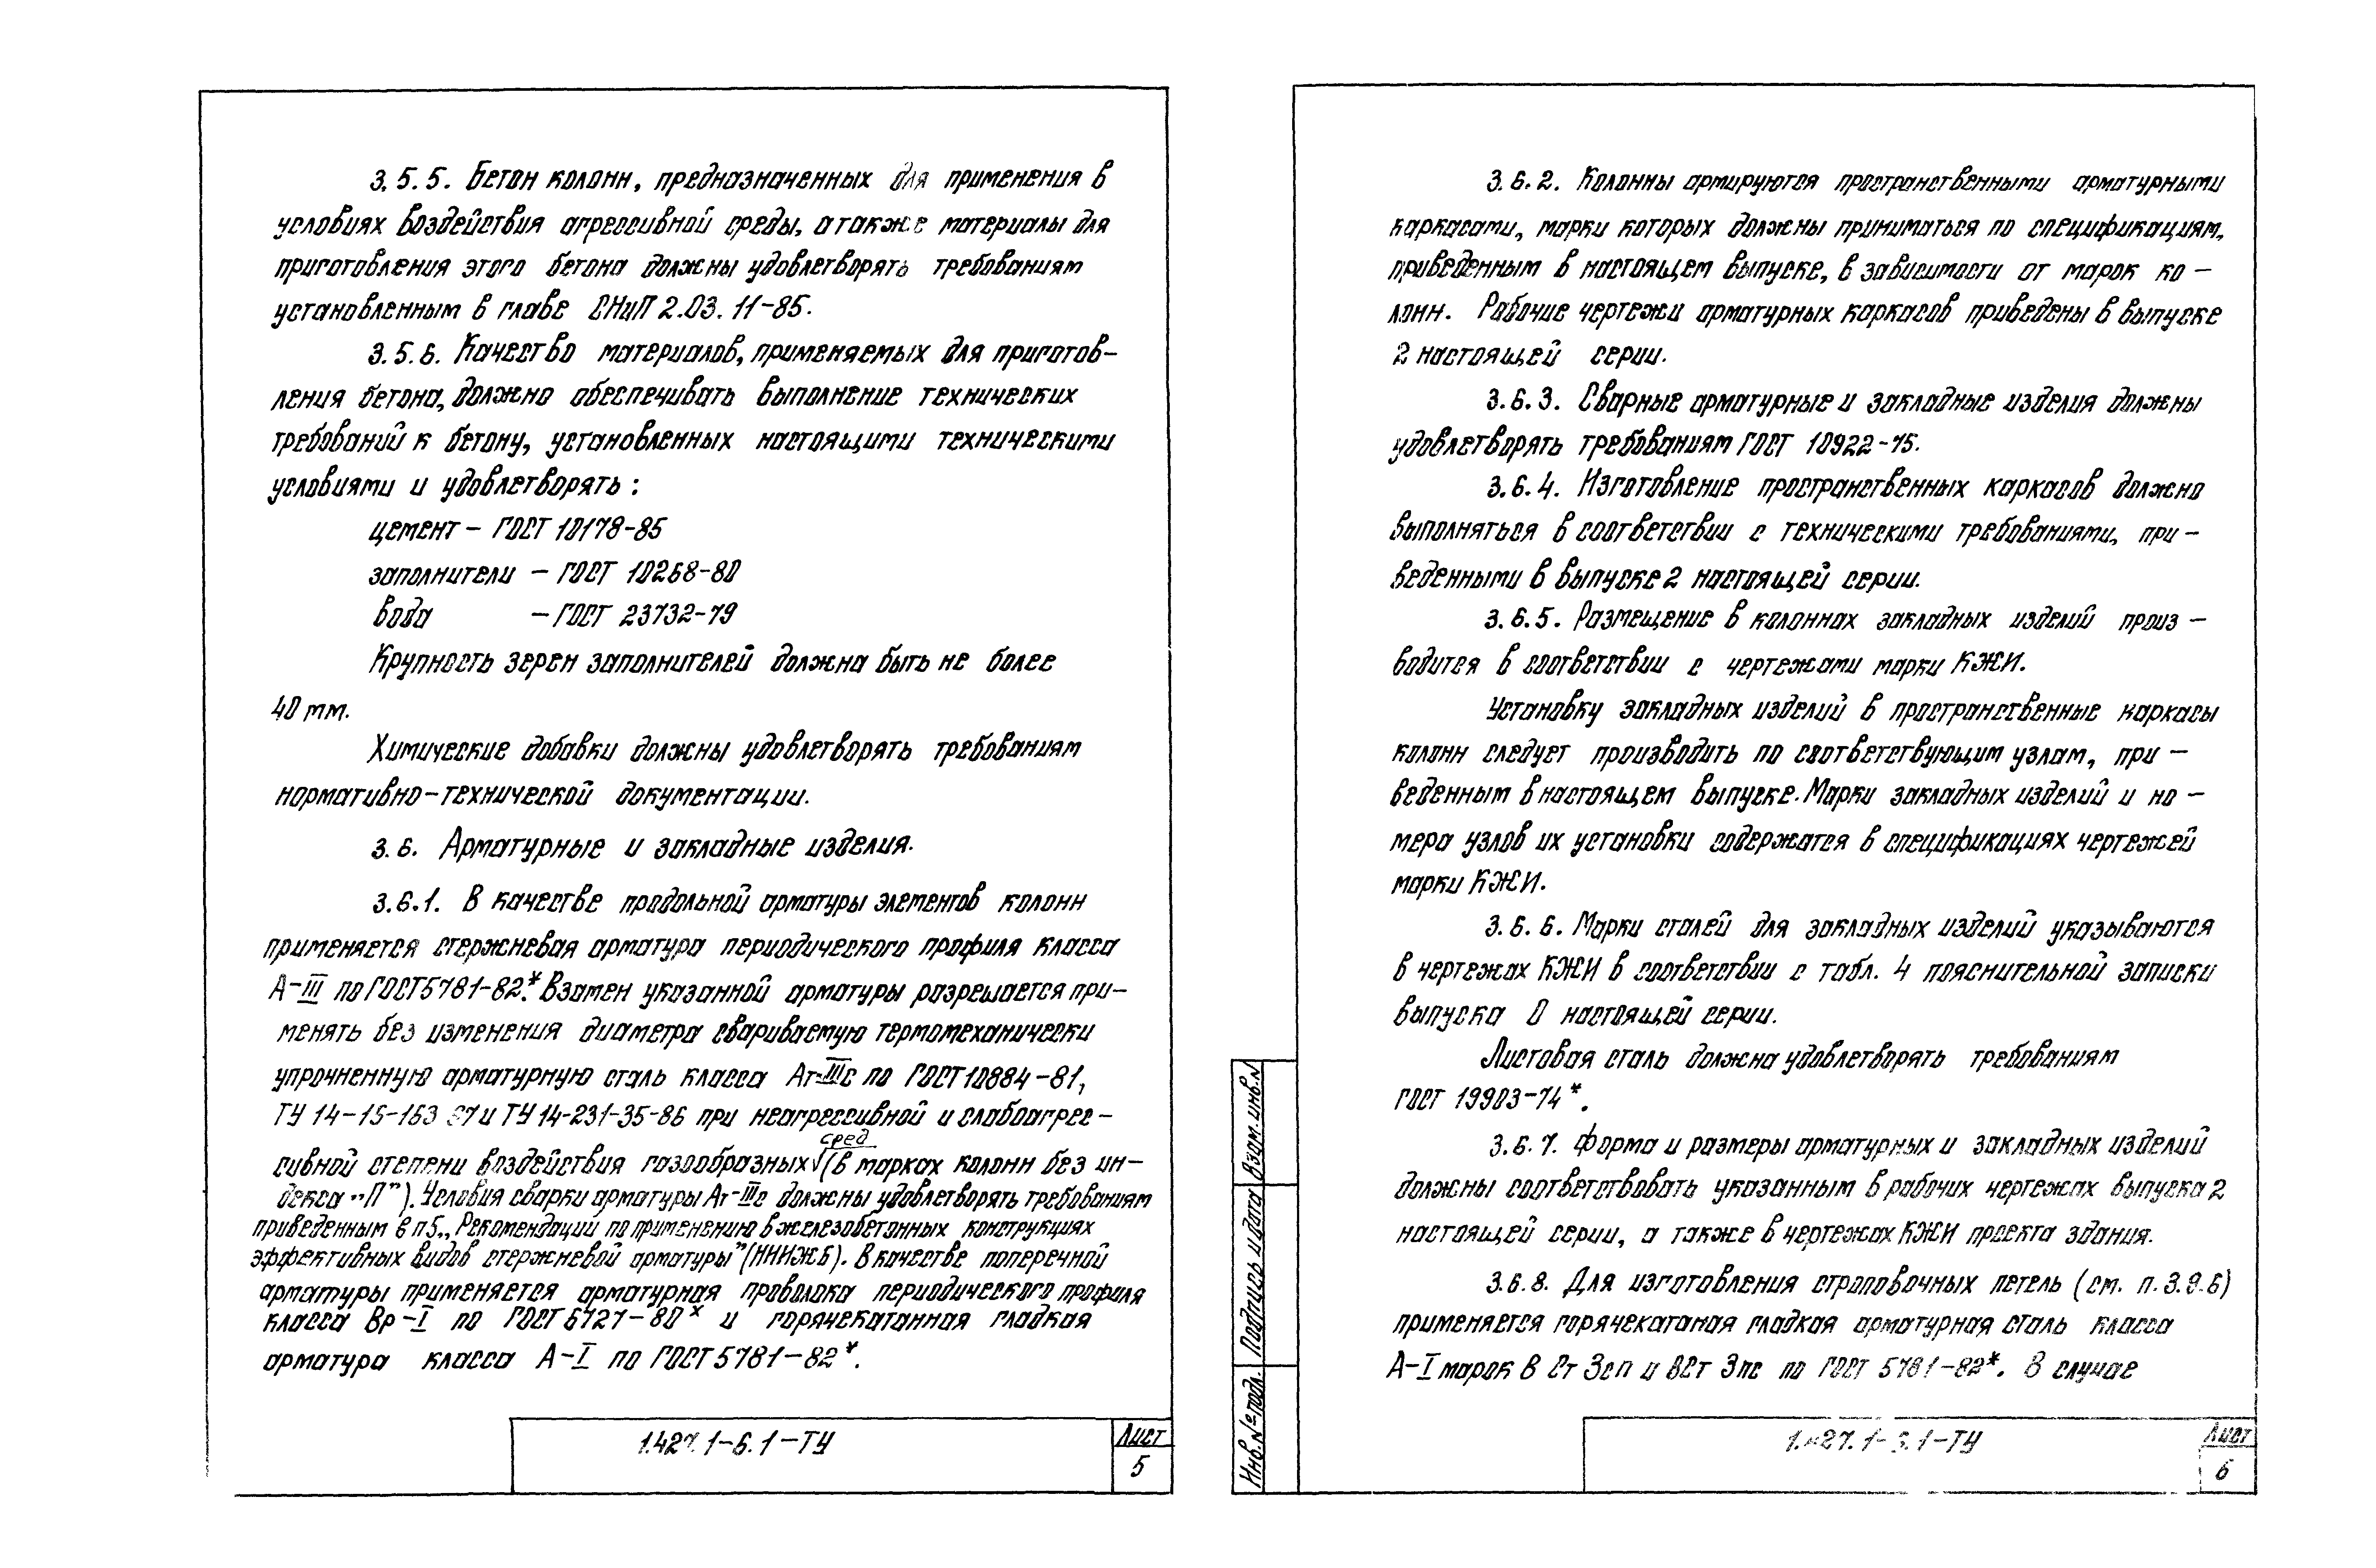 3.5.5. Бетон колонн, предназначенных для применения в
условиях воздействия агрессивной среды, а также материалы для
приготовления этого бетона должны удовлетворять требованиям
установленным в главе СНиП 2.03.11-85.
3.5.6. Качество материалов, применяемых для приготов-
ления бетона, должно обеспечивать выполнение технических
требований к бетону, установленных настоящими техническими
условиями и удовлетворять:
цемент - ГОСТ 10178-85
заполнители - ГОСТ 10268-80
вода - ГОСТ 23732-79
Крупность зерен заполнителей должна быть не более
40 мм.
Химические добавки должны удовлетворять требованиям
нормативно-технической документации.
3.6. Арматурные и закладные изделия.
3.6.1. В качестве продольной арматуры элементов колонн
применяется стержневая арматура периодического профиля класса
А-III по ГОСТ 5781-82*. Взамен указанной арматуры разрешается при-
менять без изменения диаметра свариваемую термомеханически
упрочненную арматурную сталь класса Ат-IIIс по ГОСТ 10884-81,
ТУ 14-15-153 87 и ТУ 14-231-35-86 при неагрессивной и слабоагрес-
сивной степени воздействия газообразных сред (в марках колонн без ин-
декса „П"). Условия сварки арматуры Ат-IIIс должны удовлетворять требованиям
приведенным в п5 „Рекомендаций по применению в железобетонных конструкциях
эффективных видов стержневой арматуры" (НИИЖБ). В качестве поперечной
арматуры применяется арматурная проволока периодического профиля
класса Вр-I по ГОСТ 6727-80* и горячекатанная гладкая
арматура класса А-I по ГОСТ 5781-82*.
1.427.1-6.1-ТУ
Лист
5
3.6.2. Колонны армируются пространственными арматурными
каркасами, марки которых должны приниматься по спецификациям,
приведенным в настоящем выпуске, в зависимости от марок ко-
лонн. Рабочие чертежи арматурных каркасов приведены в выпуске
2 настоящей серии.
3.6.3. Сварные арматурные и закладные изделия должны
удовлетворять требованиям ГОСТ 10922-75.
3.6.4. Изготовление пространственных каркасов должно
выполняться в соответствии с техническими требованиями, при-
веденными в выпуске 2 настоящей серии.
3.6.5. Размещение в колоннах закладных изделий произ-
водится в соответствии с чертежами марки КЖИ.
Установку закладных изделий в пространственные каркасы
колонн следует производить по соответствующим узлам, при-
веденным в настоящем выпуске. Марки закладных изделий и но-
мера узлов их установки содержатся в спецификациях чертежей
марки КЖИ.
3.6.6. Марки сталей для закладных изделий указываются
в чертежах КЖИ в соответствии с табл. 4 пояснительной записки
выпуска 0 настоящей серии.
Листовая сталь должна удовлетворять требованиям
ГОСТ 19903-74*.
3.6.7. Форма и размеры арматурных и закладных изделий
должны соответствовать указанным в рабочих чертежах выпуска 2
настоящей серии, а также в чертежах КЖИ проекта здания.
3.6.8. Для изготовления строповочных петель (см. п. 3.9.6)
применяется горячекатаная гладкая арматурная сталь класса
А-I марок В Ст 3сп и ВСт 3пс по ГОСТ 5781-82*. В случае
Взам. инв. N
Подпись и дата
Инв. № подл.
1.427.1-6.1-ТУ
Лист
6